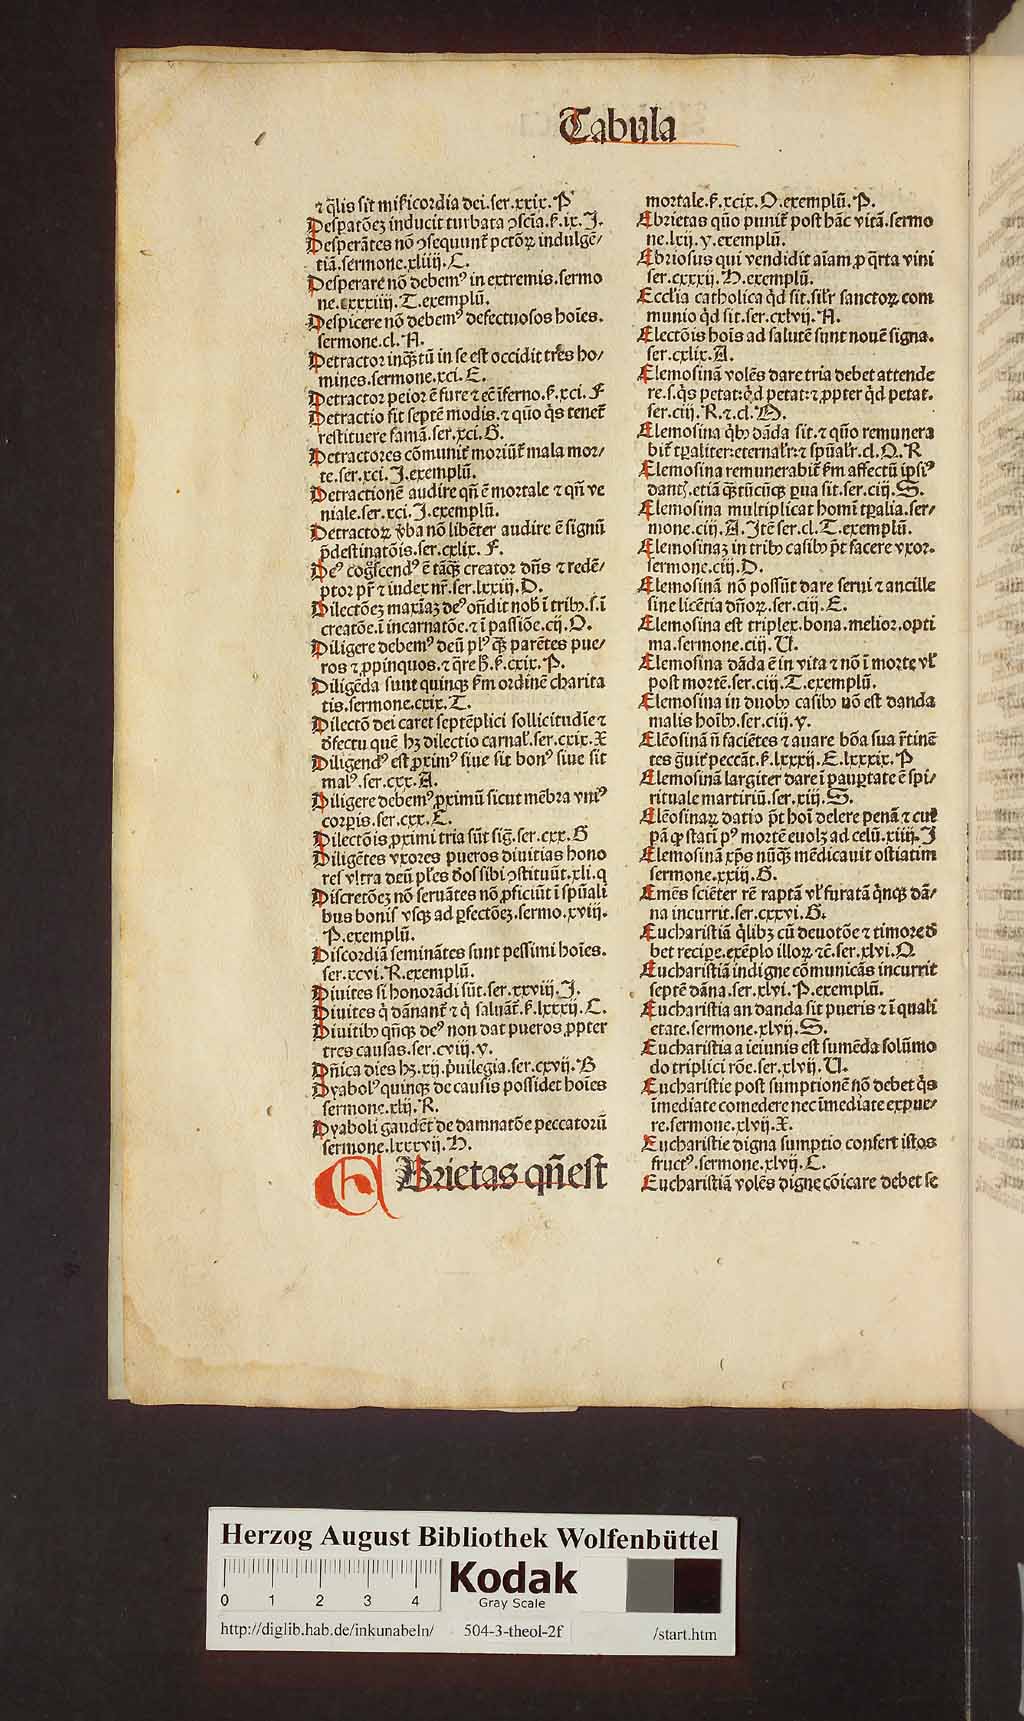 Tabula
⁊ q̃lis sit mĩsicordia dei.ser.xxix.P
Desꝑatõez inducit turbata ꝯscĩa.ẜ.ix.J.
Desperãtes nõ ꝯsequunt̃ pctõꝝ indulgẽ/
tiã.sermone.xliiij.C.
Desperare nõ debemꝰ in extremis.sermo
ne.cxxxiiij.T.exemplũ.
Despicere nõ debemꝰ defectuosos hoĩes.
sermone.cl.A.
Detractor inqꝫtũ in se est occidit tres ho/
mines.sermone.xci.E.
Detractor peior ẽ fure ⁊ ẽc ĩferno.ẜ.xci.F
Detractio fit septẽ modis.⁊ quõ q̃s tenet̃
restituere famã.ser.xci.G.
Detractores cõmunit̃ moriũt̃ mala mor/
te.ser.xci.J.exemplũ.
Detractionẽ audire qñ ẽ mortale ⁊ qñ ve
niale.ser.xci.J.exemplũ.
Detractoꝝ v̾ba nõ libẽter audire ẽ signũ
p̃destinatõis.ser.cxlix.F.
Deꝰ cog̃scendꝰ ẽ tãqꝫ creator dñs ⁊ redẽ/
ptor pr̃ ⁊ iudex nr̃.ser.lxxiij.D.
Dilectõez maxĩaz deꝰ oñdit nob̃ ĩ tribꝰ.s.ĩ
creatõe.ĩ incarnatõe.⁊ ĩ passiõe.cij.O.
Diligere debemꝰ deũ plꝰ qꝫ parẽtes pue/
ros ⁊ ꝓpinquos.⁊ q̃re h̃.ẜ.cxix.P.
Diligẽda sunt quinqꝫ ẜm ordinẽ charita
tis.sermone.cxix.T.
Dilectõ dei caret septẽplici sollicitudĩe ⁊
defectu quẽ hꝫ dilectio carnal̃.ser.cxix.X
Diligendꝰ est ꝓximꝰ siue sit bonꝰ siue sit
malꝰ.ser.cxx.A.
Diligere debemꝰ ꝓximũ sicut mẽbra vniꝰ
corꝑis.ser.cxx.C.
Dilectõis ꝓximi tria sũt sig̃.ser.cxx.G
Diligẽtes vxores pueros diuitias hono
res vltra deũ pl̃es deos sibi ꝯstituũt.xli.q
Discretõez nõ seruãtes nõ ꝓficiũt ĩ spũali
bus bonis vsqꝫ ad ꝑfectõez.sermo.xviij.
P.exemplũ.
Discordiã seminãtes sunt pessimi hoĩes.
ser.xcvi.R.exemplũ.
Diuites si honorãdi sũt.ser.xxviij.J.
Diuites q̃ dãnant̃ ⁊ q̃ saluãt̃.ẜ.lxxxij.C.
Diuitibꝰ qñqꝫ deꝰ non dat pueros ꝓpter
tres causas.ser.cviij.v.
Dñica dies hꝫ.xij.p̃uilegia.ser.cxvij.B
Dyabolꝰ quinqꝫ de causis possidet hoĩes
sermone.xlij.R.
Dyaboli gaudẽt de damnatõe peccatorũ
sermone.lxxxvij.H.
EBrietas qñ est
mortale.ẜ.xcix.O.exemplũ.P.
Ebrietas quõ punit̃ post hãc vitã.sermo
ne.lxij.y.exemplũ.
Ebriosus qui vendidit aĩam ꝓ q̃rta vini
ser.cxxxij.H.exemplũ.
Eccl̃ia catholica q̃d sit.sil̃r sanctoꝝ com
munio q̃d sit.ser.cxlvij.A.
Electõis hoĩs ad salutẽ sunt nouẽ signa.
ser.cxlix.A.
Elemosinã volẽs dare tria debet attende
re.s.q̃s petat:q̃d petat:⁊ ꝓpter q̃d petat.
ser.ciij.R.⁊.cl.N.
Elemosina q̃bꝰ dãda sit.⁊ quõ remunera
bit̃ tꝑaliter:eternal̃r:⁊ spũal̃r.cl.Q.R
Elemosina remunerabit̃ ẜm affectũ ipsiꝰ
dantꝭ.etiã qꝫtũcũqꝫ ꝑua sit.ser.ciij.S.
Elemosina multiplicat homĩ tꝑalia.ser/
mone.ciij.A.Jtẽ ser.cl.T.exemplũ.
Elemosinaz in tribꝰ casibꝰ põt facere vxor.
sermone.ciij.D.
Elemosinã nõ possũt dare serui ⁊ ancille
sine licẽtia dñoꝝ.ser.ciij.E.
Elemosina est triplex.bona.melior.opti
ma.sermone.ciij.U.
Elemosina dãda ẽ in vita ⁊ nõ ĩ morte vl̃
post mortẽ.ser.ciij.T.exemplũ.
Elemosina in duobꝰ casibꝰ nõ est danda
malis hoĩbꝰ.ser.ciij.v.
Elẽosinã ñ faciẽtes ⁊ auare bõa sua r̃tinẽ
tes g̃uit̃ peccãt.ẜ.lxxxij.E.lxxxix.P
Elemosinã largiter dare ĩ pauꝑtate ẽ spi/
rituale martiriũ.ser.xij.S.
Elẽosinaꝝ datio põt hoĩ delere penã ⁊ cul
pã qꝫ statĩ pꝰ mortẽ euolꝫ ad celũ.xiiij.J
Elemosinã xp̃s nũqꝫ mẽdicauit ostiatim
sermone.xxiij.G.
Emẽs sciẽter rẽ raptã vl̃ furatã q̃nqꝫ dã/
na incurrit.ser.cxxvi.G.
Eucharistiã q̃libꝫ cũ deuotõe ⁊ timore de
bet recipe.exẽplo illoꝝ ⁊c̃.ser.xlvi.O
Eucharistiã indigne cõmunicãs incurrit
septẽ dãna.ser.xlvi.P.exemplũ.
Eucharistia an danda sit pueris ⁊ ĩ quali
etate.sermone.xlvij.S.
Eucharistia a ieiunis est sumẽda solũmo
do triplici rõe.ser.xlvij.U.
Eucharistie post sumptionẽ nõ debet q̃s
ĩmediate comedere nec ĩmediate expue/
re.sermone.xlvij.X.
Eucharistie digna sumptio confert istos
fructꝰ.sermone.xlvij.C.
Eucharistiã volẽs digne cõicare debet se
Herzog August Bibliothek Wolfenbüttel
0 1 2 3 4
Kodak
Gray Scale
http://diglib.hab.de/inkunabeln/ 504-3-theol-2f /start.htm